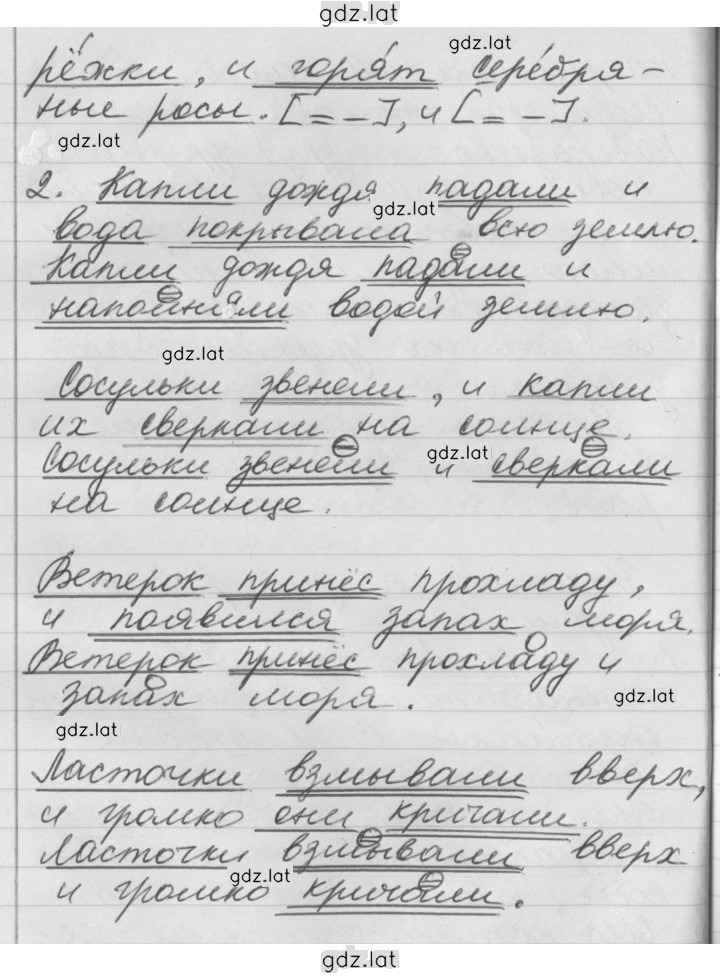 gdz.lat
рёжки, и горят серебря-
gdz.lat
ные росы. [= –], и [= –].
gdz.lat
2. Капли дождя падали и
gdz.lat
вода покрывала всю землю.
Капли дождя падали и
наполняли водой землю.
gdz.lat
Сосульки звенели, и капли
их сверкали на солнце.
gdz.lat
Сосульки звенели и сверкали
на солнце.
Ветерок принёс прохладу,
и появился запах моря.
Ветерок принёс прохладу и
запах моря.
gdz.lat
gdz.lat
Ласточки взмывали вверх,
и громко они кричали.
Ласточки взмывали вверх
gdz.lat
и громко кричали.
gdz.lat